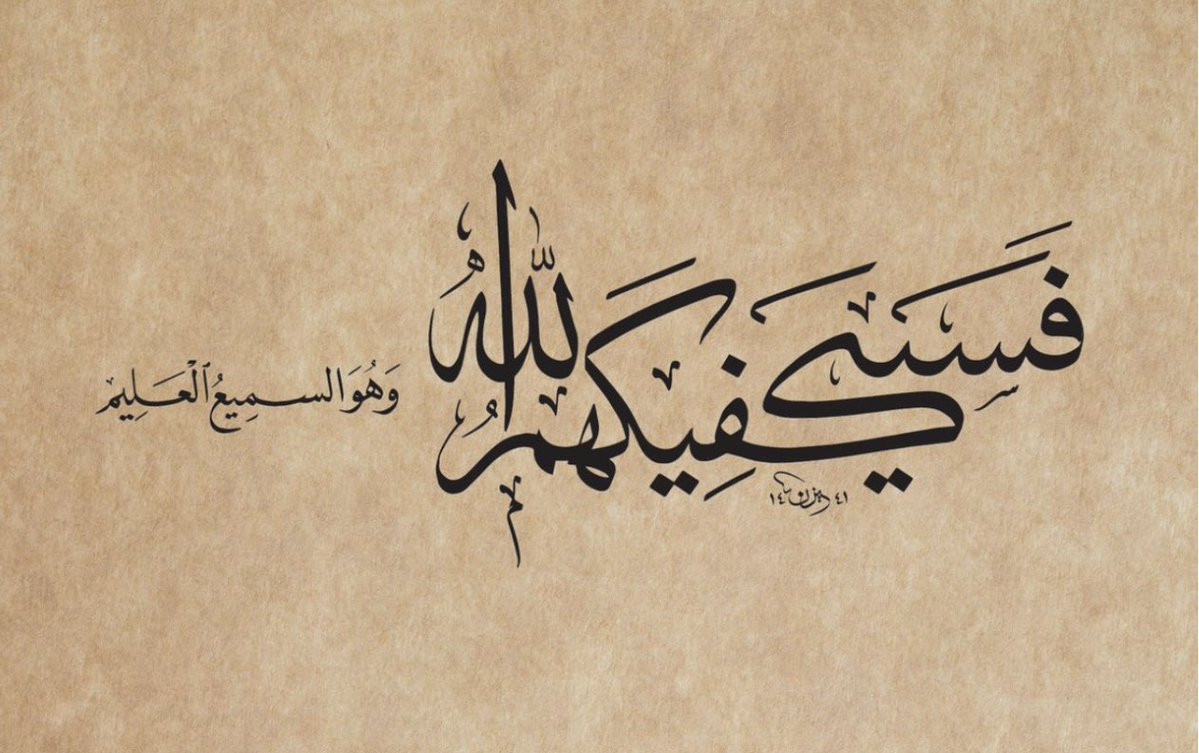 فَسَيَكْفِيكَهُمُ اللَّهُ
وَهُوَ السميعُ ٱلْعَلِيم